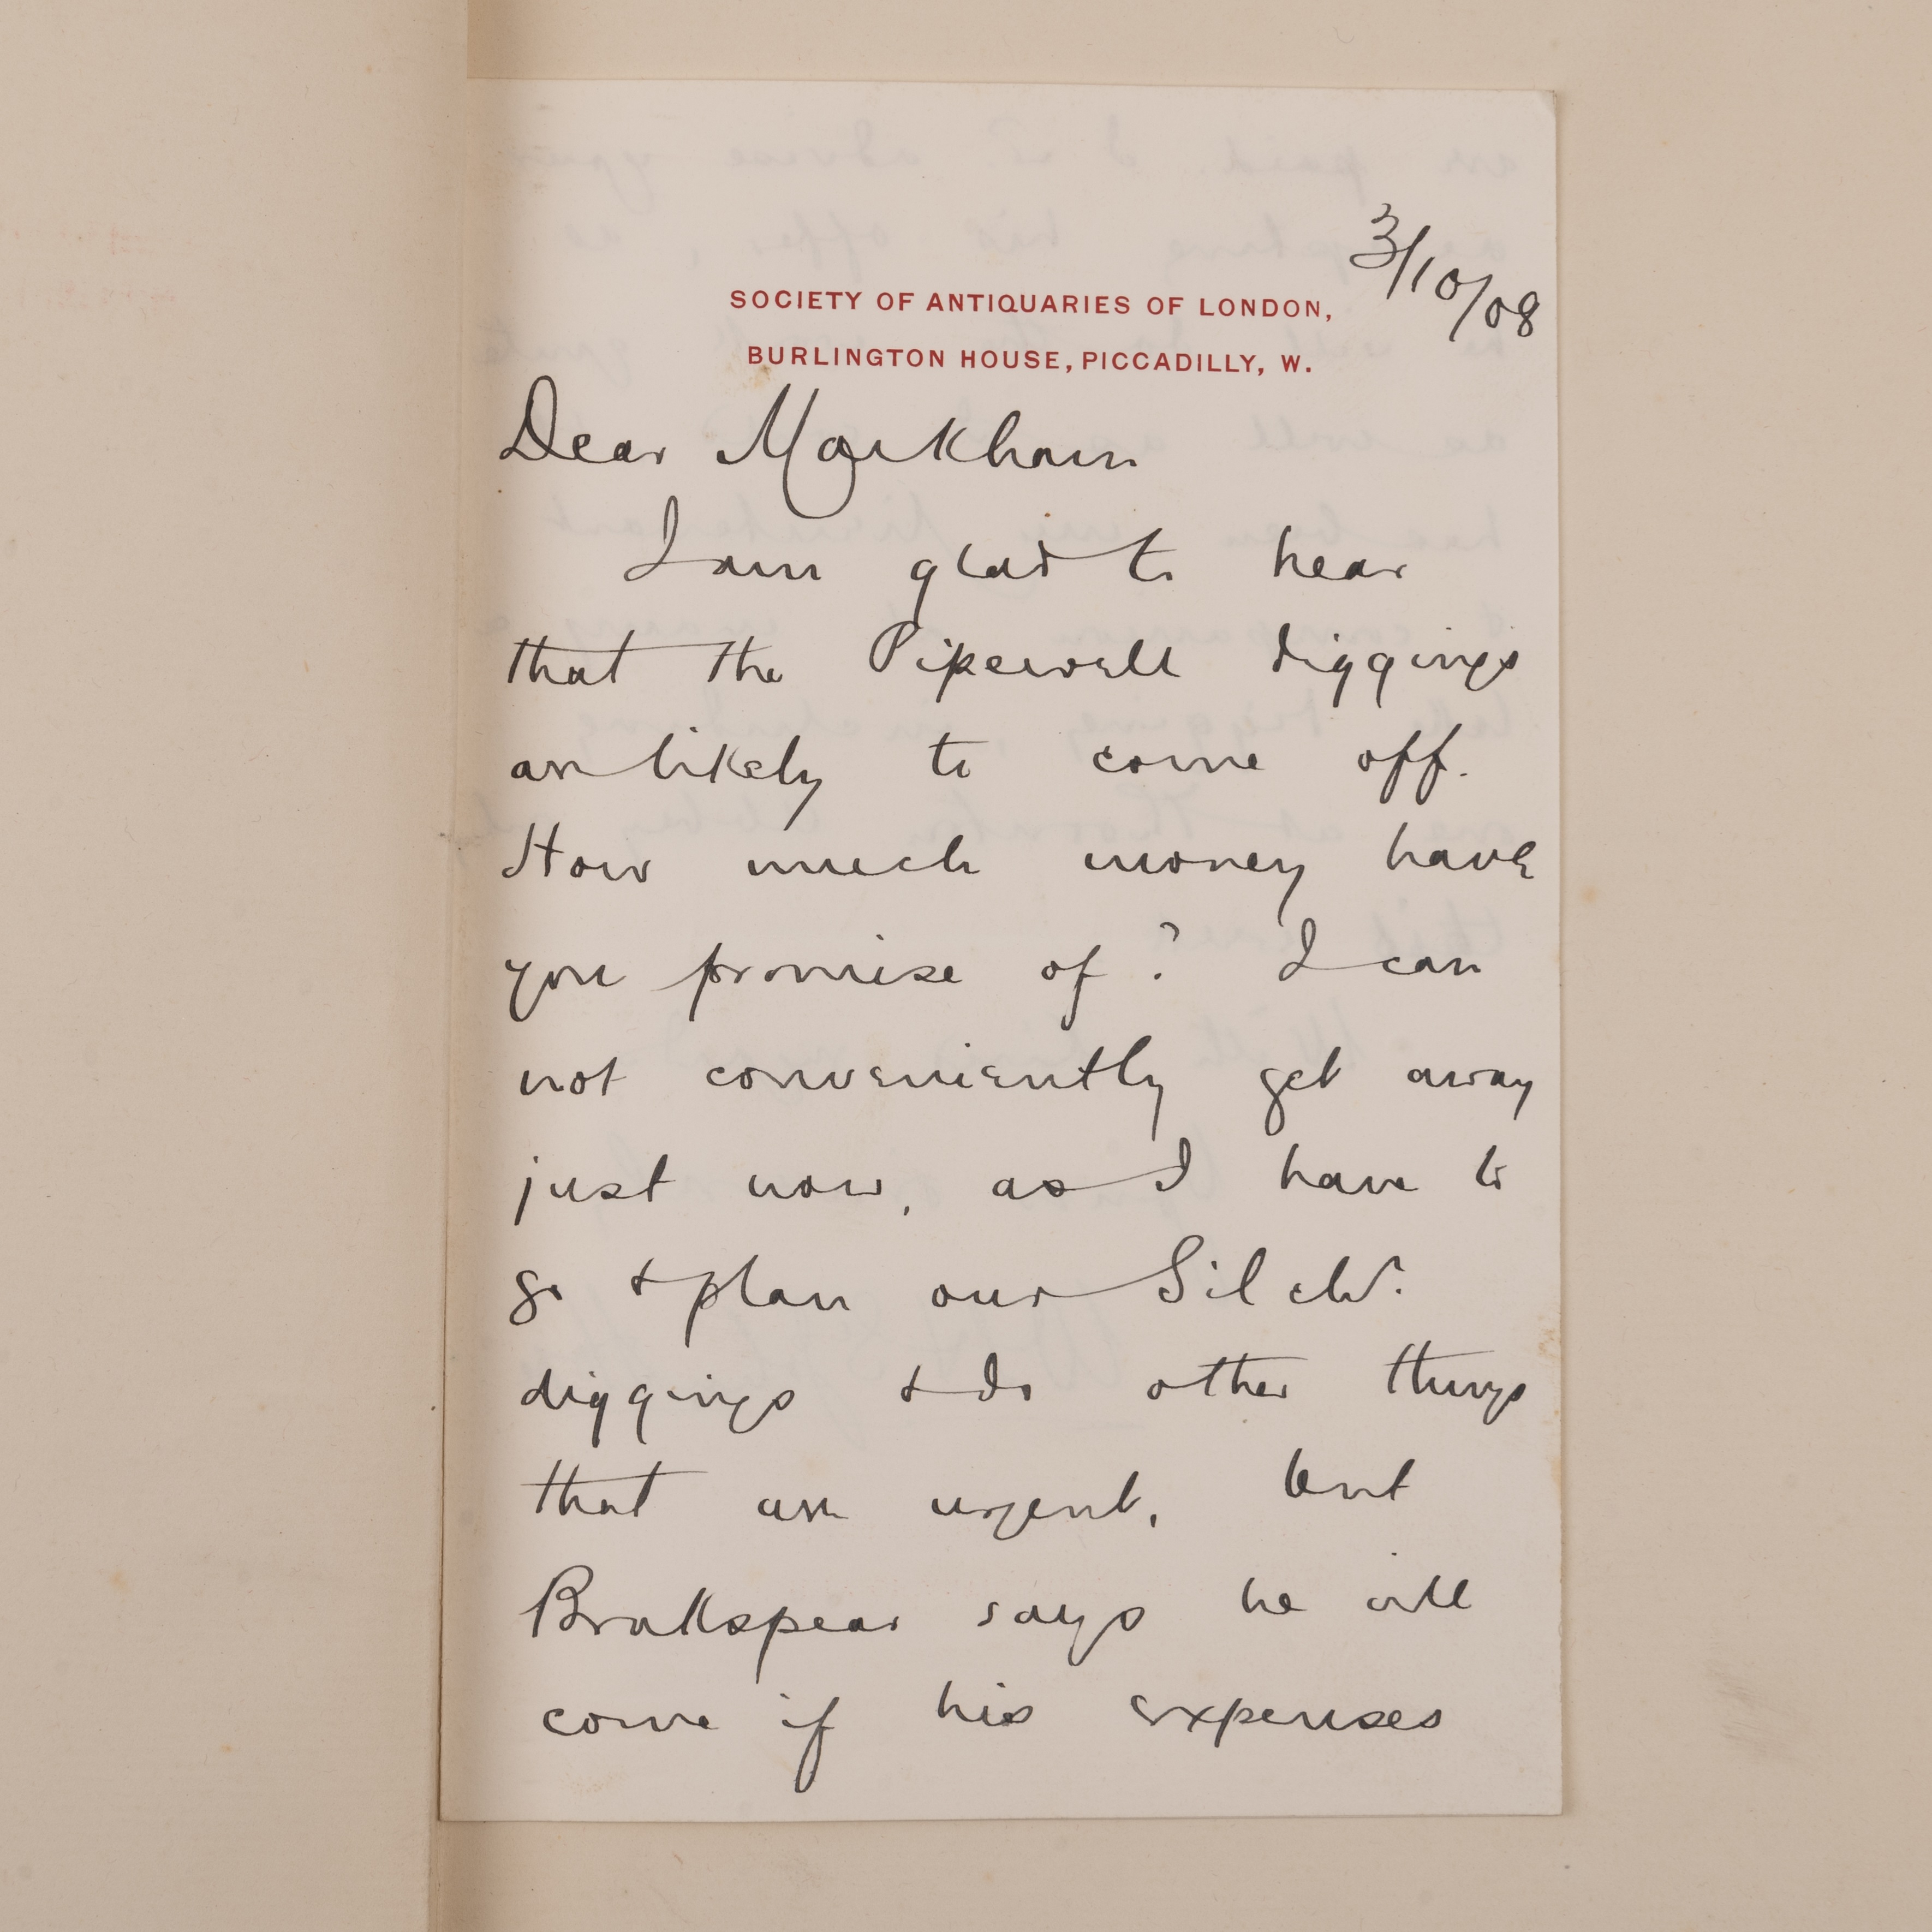 3/10/08
SOCIETY OF ANTIQUARIES OF LONDON,
BURLINGTON HOUSE, PICCADILLY, W.
Dear Markham
I am glad to hear
that the Pipewell diggings
are likely to come off.
How much money have
you promise of? I can
not conveniently get away
just now, as I have to
go & plan our Silchr.
diggings & do other things
that are urgent, but
Brakspear says he will
come if his expenses